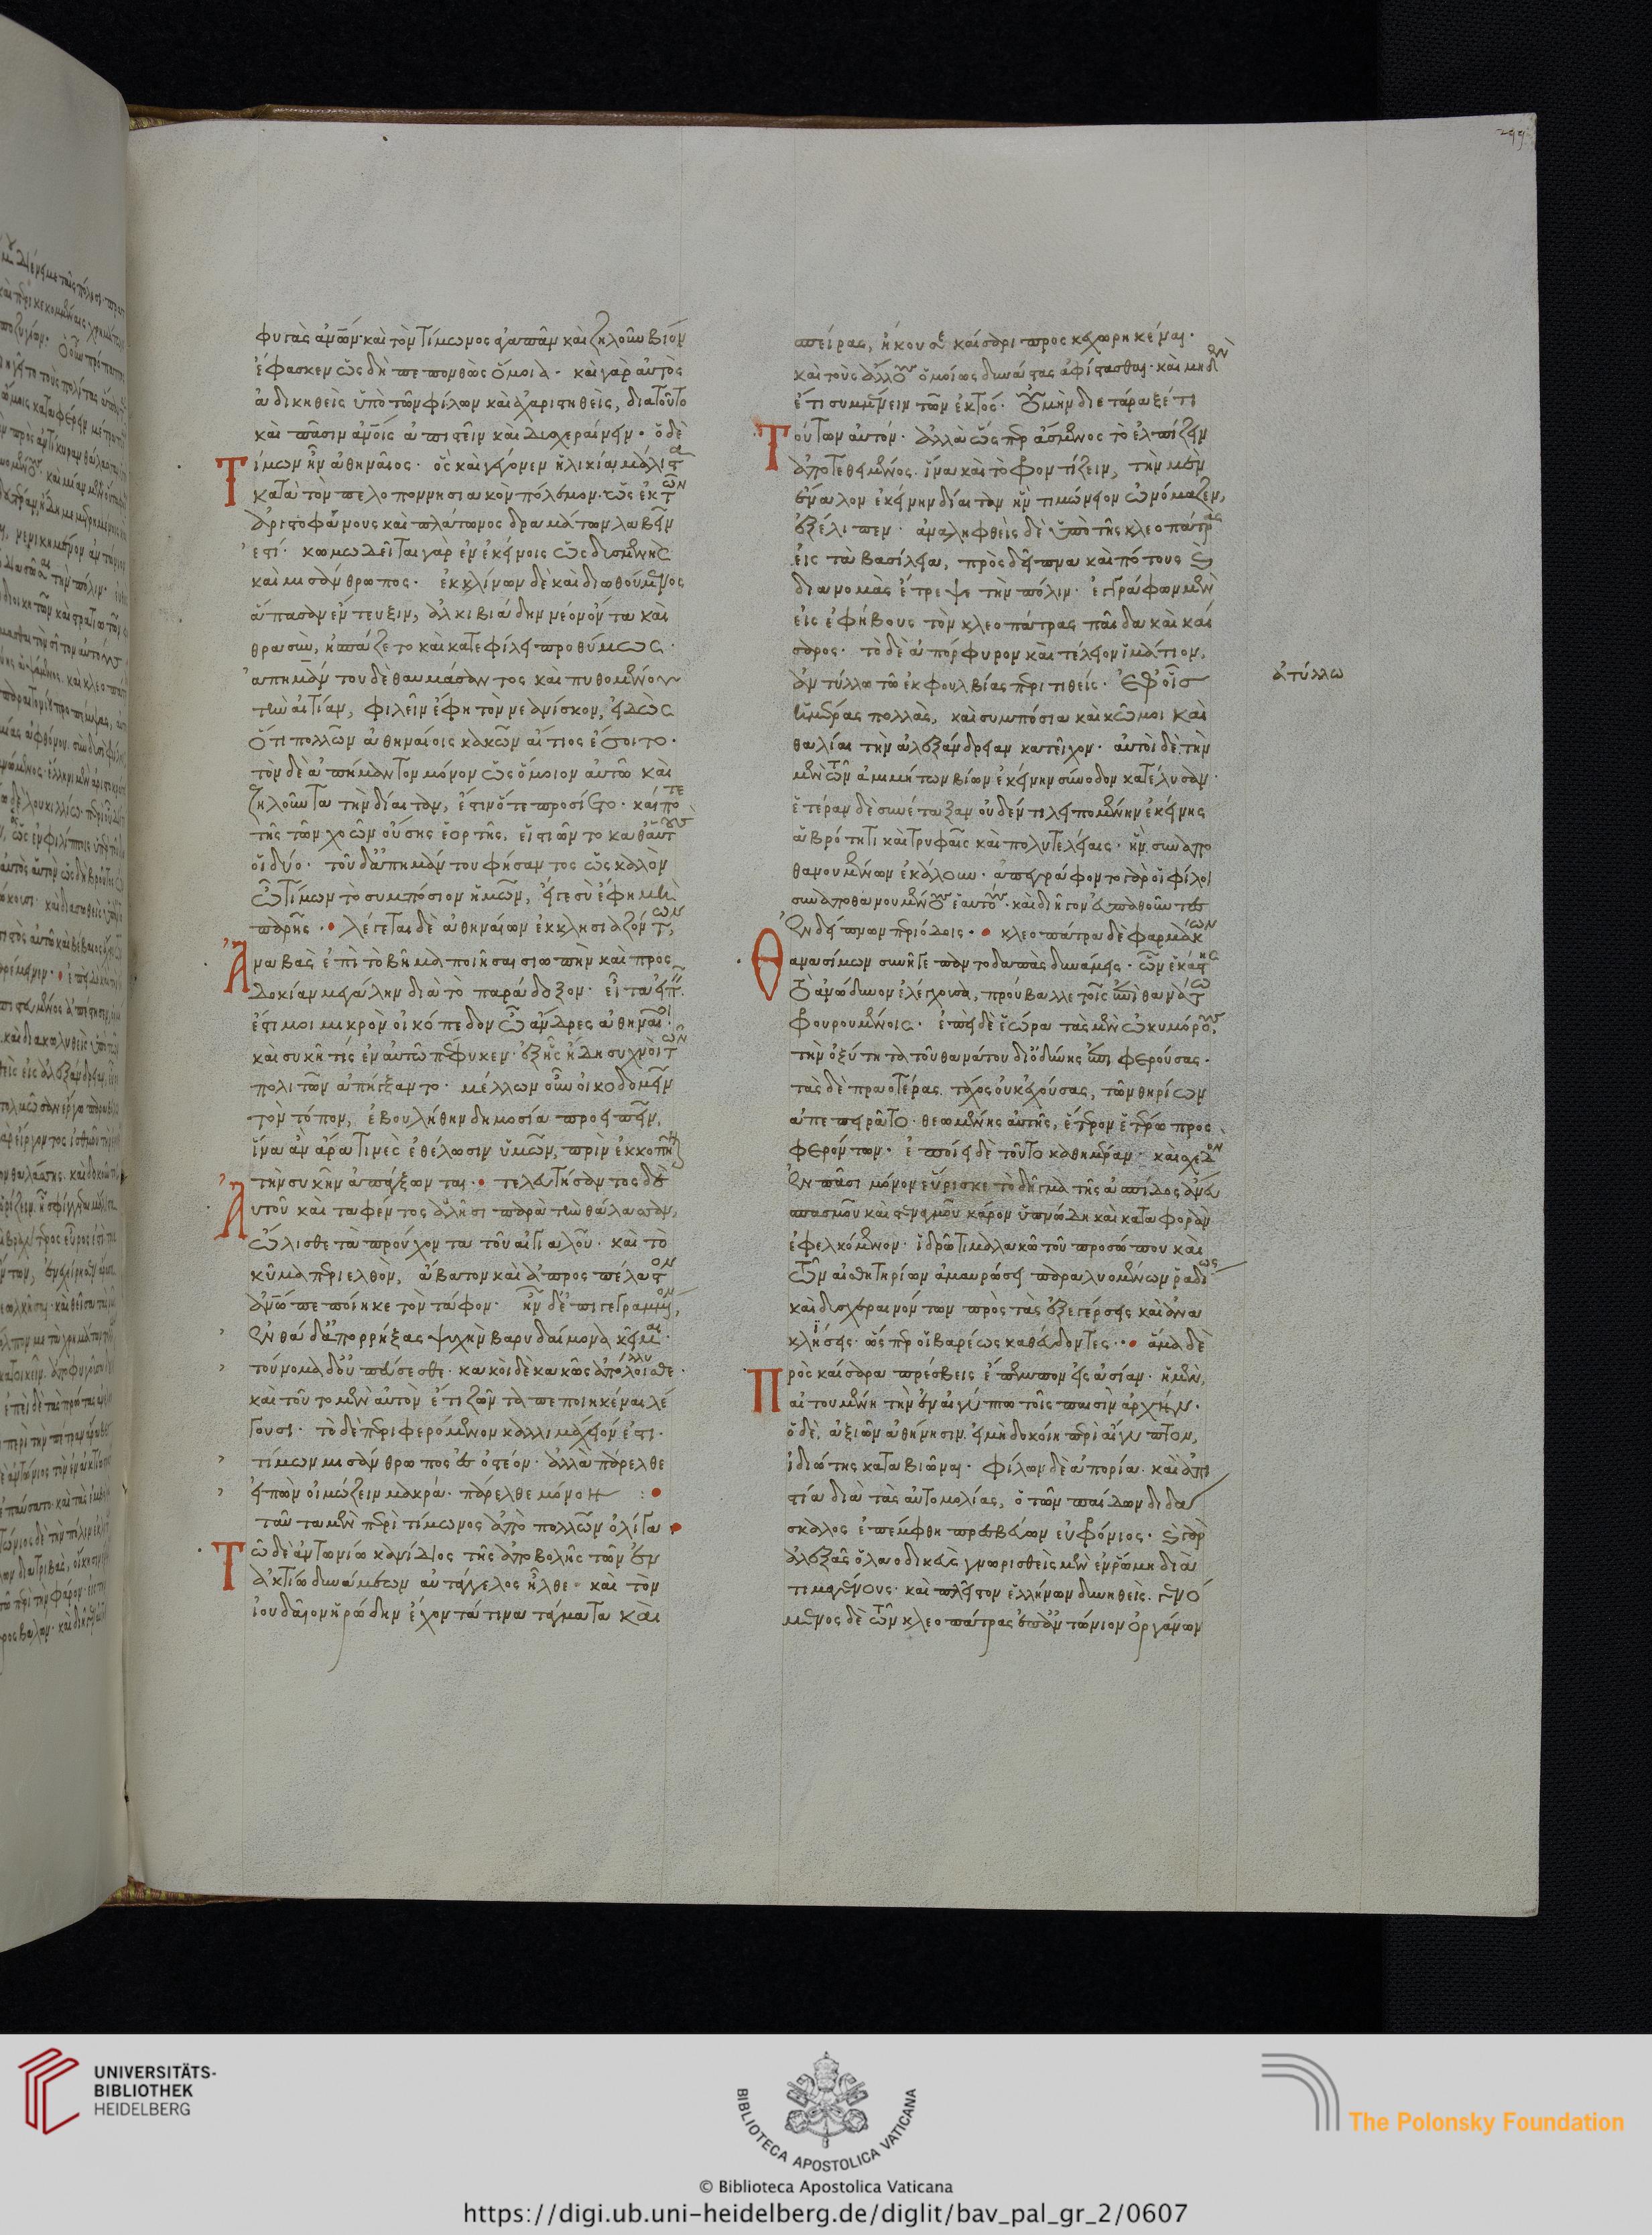 299
φυτὰς ἀν̅ων· καὶ τὸν Τίμωνος ἀγαπᾶν καὶ ζηλοῦν βίον
ἔφασκεν ὡς δὴ πεπονθὼς ὅμοια· καὶ γὰρ αὐτὸς
ἀδικηθεὶς ὑπὸ τῶν φίλων καὶ ἀχαριστηθεὶς, διατοῦτο
καὶ πᾶσιν ἀν̅οις ἀπιστεῖν καὶ δυσχεραίνειν· ὁ δὲ
Τίμων ἦν ἀθηναῖος· ὃς καὶ γέγονεν ἡλικίαν μάλιστα
κατὰ τὸν πελοποννησιακὸν πόλεμον· ὡς ἐκ τῶν
ἀριστοφάνους καὶ πλάτωνος δραμάτων λαβεῖν
ἐστί· κωμωδεῖται γὰρ ἐν ἐκείνοις ὡς δυσμενὴς
καὶ μισάνθρωπος· ἐκκλίνων δὲ καὶ διωθούμενος
ἅπασαν ἔντευξιν, ἀλκιβιάδην νέον ὄντα καὶ
θρασὺν, ἠσπάζετο καὶ κατεφίλει προθύμως·
ἀπημάντου δὲ θαυμάσαντος καὶ πυθομένου
τὴν αἰτίαν, φιλεῖν ἔφη τὸν νεανίσκον, εἰδὼς
ὅτι πολλῶν ἀθηναίοις κακῶν αἴτιος ἔσοιτο·
τὸν δὲ ἀπήμαντον μόνον ὡς ὅμοιον αὐτῶ καὶ
ζηλοῦντα τὴν δίαιταν, ἔστιν ὅτε προσίετο· καί ποτε
τῆς τῶν χοῶν οὔσης ἑορτῆς, εἱστιῶντο καθ' αὑτοὺς
οἱ δύο· τοῦ δ' ἀπημάντου φήσαντος ὡς καλὸν
ὦ τίμων τὸ συμπόσιον ἡμῶν, εἴγε σὺ ἔφη μὴ
παρῆς· λέγεται δὲ ἀθηναίων ἐκκλησιαζόντων,
Ἀναβὰς ἐπὶ τὸ βῆμα ποιῆσαι σιωπὴν καὶ προς
δοκίαν μεγάλην διὰ τὸ παράδοξον· εἶτα εἰπεῖν·
ἔστι μοι μικρὸν οἰκόπεδον ὦ ἄνδρες ἀθηναῖοι·
καὶ συκῆ τίς ἐν αὐτῶ πέφυκεν· ἐξ ἧς ἤδη συχνοὶ τῶν
πολιτῶν ἀπήγξαντο· μέλλων οὖν οἰκοδομεῖν
τὸν τόπον, ἐβουλήθην δημοσία προειπεῖν,
ἵνα ἂν ἄρα τινὲς ἐθέλωσιν ὑμῶν, πρὶν ἐκκοπῆναι
τὴν συκῆν ἀπάγξωνται· τελευτήσαντος δὲ
Αὐτοῦ καὶ ταφέντος ἁλῆσι παρὰ τὴν θάλασσαν,
ὤλισθε τὰ προύχοντα τοῦ αἰγιαλοῦ· καὶ τὸ
κῦμα περιελθὸν, ἄβατον καὶ ἀπροσπέλαστον
ἀν̅ω πεποίηκε τὸν τάφον· ἦν δ' ἐπιγεγραμμένον,
ἐνθάδ' ἀπορρήξας ψυχὴν βαρυδαίμονα κεῖμαι·
τοὔνομα δ' οὐ πεύσεσθε· κακοὶ δὲ κακῶς ἀπόλοισθε·
καὶ τοῦτο μὲν αὐτὸν ἔτι ζῶντα πεποιηκέναι λέ
γουσι· τὸ δὲ περιφερόμενον καλλιμάχειόν ἐστι·
τίμων μισάνθρωπος ἐσοικέω· ἀλλὰ πάρελθε
εἰπὼν οἰμώζειν μακρά· πάρελθε μόνον
ταῦτα μὲν περὶ τίμωνος ἀπὸ πολλῶν ὀλίγα·
Τῶ δὲ ἀντωνίω κανίδιος τῆς ἀποβολῆς τῶν ἐν
ἀκτίω δυνάμεων αὐτάγγελος ἦλθε· καὶ τὸν
ἰουδαῖον ἡρώδην ἔχοντά τινα τάγματα καὶ
σπείρας, ἤκουσε καίσαρι προσκεχωρηκέναι·
καὶ τοὺς ἄλλους ὁμοίως δυνάστας ἀφίστασθαι· καὶ μηδὲν
ἔτι συμμένειν τῶν ἐκτός· οὐ μὴν διετάραξέ τι
Τούτων αὐτόν· ἀλλὰ ὥσπερ ἄσμενος τὸ ἐλπίζειν
ἀποτεθειμένος· ἵνα καὶ τὸ φροντίζειν, τὴν μὲν
ἔναλον ἐκείνην δίαιταν ἣν τιμώνειον ὠνόμαζεν,
ἐξέλιπεν· ἀναληφθεὶς δὲ ὑπὸ τῆς κλεοπάτρας
εἰς τὰ βασίλεια, πρὸς δεῖπνα καὶ πότους καὶ
διανομὰς ἔτρεψε τὴν πόλιν· ἐγγράφων μὲν
εἰς ἐφήβους τὸν κλεοπάτρας παῖδα καὶ καί
σαρος· τὸ δὲ ἀπόρφυρον καὶ τέλειον ἱμάτιον,
ἀντύλλω τῶ ἐκ φουλβίας περιτιθείς· ἐφ' οἷς
ἡμέρας πολλὰς, καὶ συμπόσια καὶ κῶμοι καὶ
θαλίαι τὴν ἀλεξάνδρειαν κατεῖχον· αὐτοὶ δὲ τὴν
μὲν τῶν ἀμιμήτων βίων ἐκείνην σύνοδον κατέλυσαν·
ἑτέραν δὲ συνέταξαν οὐδέν τι λειπομένην ἐκείνης
ἁβρότητι καὶ τρυφαῖς καὶ πολυτελείαις· ἣν συναπο
θανουμένων ἐκάλουν· ἀπεγράφοντο γὰρ οἱ φίλοι
συναποθανουμένους ἑαυτούς· καὶ διῆγον εὐπαθοῦντες
ἐν δείπνων περιόδοις· κλεοπάτρα δὲ φαρμάκων
Θανασίμων συνῆγε παντοδαπὰς δυνάμεις· ὧν ἑκάστης
τὸ ἀνώδυνον ἐλέγχουσα, προύβαλλε τοῖς ἐπὶ θανάτω
φρουρουμένοις· ἐπεὶ δὲ ἑώρα τὰς μὲν ὠκυμόρους,
τὴν ὀξύτητα τοῦ θανάτου δι' ὀδύνης ἐπιφερούσας·
τὰς δὲ πραοτέρας, τάχος οὐκ ἐχούσας, τῶν θηρίων
ἀπεπειρᾶτο· θεωμένης αὐτῆς, ἕτερον ἑτέρω προς
φερόντων· ἐποίει δὲ τοῦτο καθημέραν· καὶ σχεδὸν
ἐν πᾶσι μόνον εὕρισκε τὸ δῆγμα τῆς ἀσπίδος ἄνευ
σπασμοῦ καὶ στεναγμοῦ κάρον ὑπνώδη καὶ καταφορὰν
ἐφελκόμενον· ἱδρῶτι μαλακῶ τοῦ προσώπου καὶ
τῶν αἰσθητηρίων ἀμαυρώσει παραλυομένων ῥαδίως
καὶ δυσχεραινόντων πρὸς τὰς ἐξεγέρσεις καὶ ἀνα
κλήσεις· ὥσπερ οἱ βαρέως καθεύδοντες· ἅμα δὲ
Πρὸς καίσαρα πρέσβεις ἔπεμπον εἰς ἀσίαν· ἡ μὲν,
αἰτουμένη τὴν ἐν αἰγύπτω τοῖς παισὶν ἀρχήν·
ὁ δὲ, ἀξιῶν ἀθήνησιν, εἰ μὴ δοκοίη περὶ αἴγυπτον,
ἰδιώτης καταβιῶναι· φίλων δὲ ἀπορία· καὶ ἀπι
στία διὰ τὰς αὐτομολίας, ὁ τῶν παίδων διδά
σκαλος ἐπέμφθη πρεσβεύων εὐφρόνιος· καὶ γὰρ
ἀλεξᾶς ὁ λαοδικεὺς γνωρισθεὶς μὲν ἐν ῥώμη διὰ
τιμαγένους· καὶ πλεῖστον ἑλλήνων δυνηθεὶς· γενό
μενος δὲ τῶν κλεοπάτρας ἐπ' ἀντώνιον ὀργάνων
ἀτύλλω
UNIVERSITÄTS-
BIBLIOTHEK
HEIDELBERG
BIBLIOTECA APOSTOLICA VATICANA
© Biblioteca Apostolica Vaticana
The Polonsky Foundation
https://digi.ub.uni-heidelberg.de/diglit/bav_pal_gr_2/0607